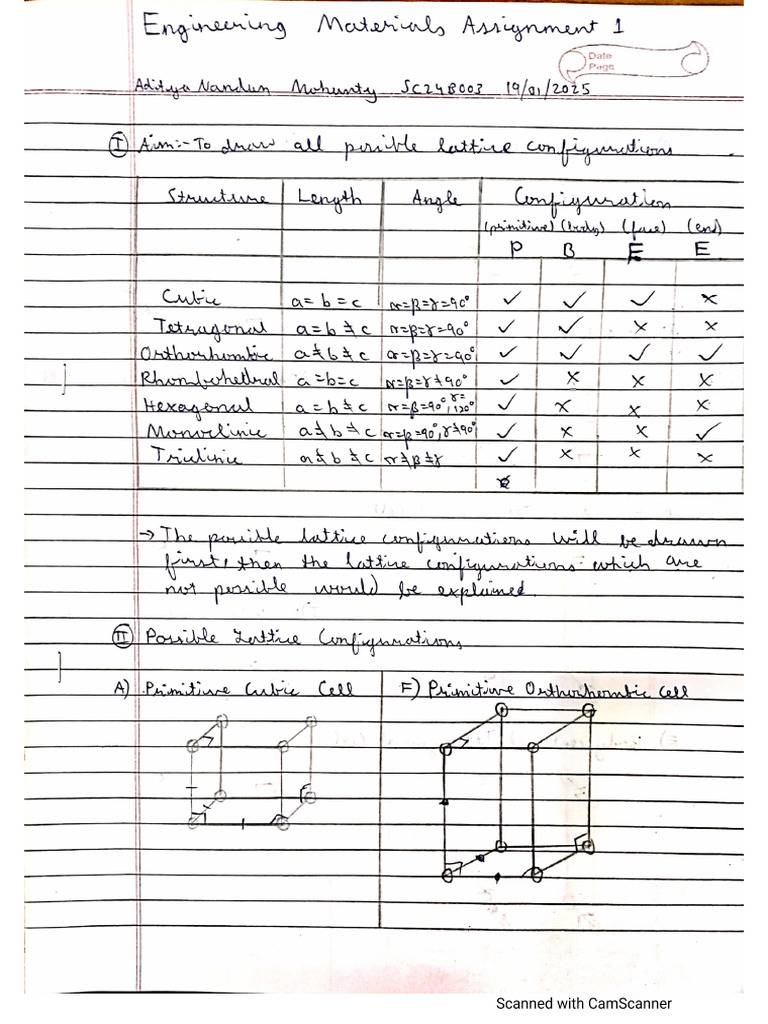 Engineering Materials Assignment 1
Date
Page
Aditya Nandan Mohanty SC24B003 19/01/2025
I Aim:- To draw all possible lattice configurations
Structure Length Angle Configuration
(primitive) (body) (face) (end)
P B F E
Cubic a = b = c α=β=γ=90° ✓ ✓ ✓ ×
Tetragonal a = b ≠ c α=β=γ=90° ✓ ✓ × ×
Orthorhombic a ≠ b ≠ c α=β=γ=90° ✓ ✓ ✓ ✓
Rhombohedral a = b = c α=β=γ≠90° ✓ × × ×
Hexagonal a = b ≠ c α=β=90°, γ=120° ✓ × × ×
Monoclinic a ≠ b ≠ c α=β=90°, γ≠90° ✓ × × ✓
Triclinic a ≠ b ≠ c α≠β≠γ ✓ × × ×
→ The possible lattice configurations will be drawn
first, then the lattice configurations which are
not possible would be explained.
II Possible Lattice Configurations
A) Primitive Cubic Cell F) Primitive Orthorhombic Cell
Scanned with CamScanner